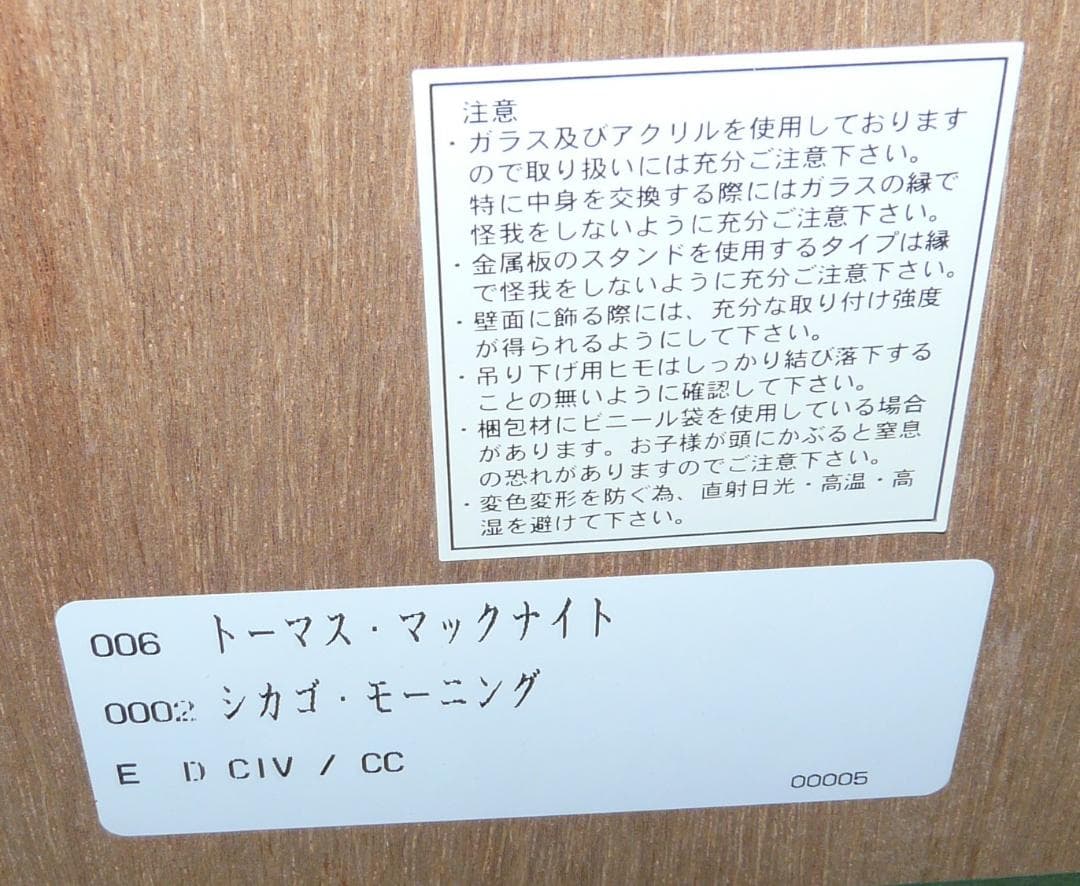 注意
・ガラス及びアクリルを使用しております
ので取り扱いには充分ご注意下さい。
特に中身を交換する際にはガラスの縁で
怪我をしないように充分ご注意下さい。
・金属板のスタンドを使用するタイプは縁
で怪我をしないように充分ご注意下さい。
・壁面に飾る際には、充分な取り付け強度
が得られるようにして下さい。
・吊り下げ用ヒモはしっかり結び落下する
ことの無いように確認して下さい。
・梱包材にビニール袋を使用している場合
があります。お子様が頭にかぶると窒息
の恐れがありますのでご注意下さい。
・変色変形を防ぐ為、直射日光・高温・高
湿を避けて下さい。
006 トーマス・マックナイト
0002 シカゴ・モーニング
E D CIV / CC
00005